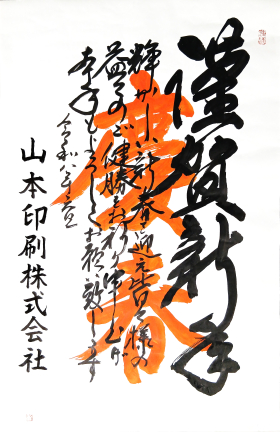 謹賀新年
慶春
輝かしい新春を迎え皆々様の
益々のご健勝をお祈り申し上げ
本年もよろしくお願い致します
令和
山本印刷株式会社